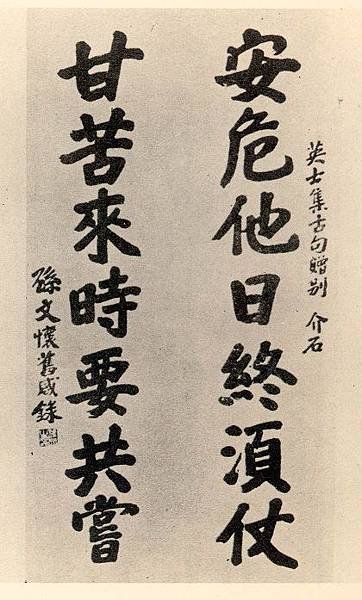 英士集古句贈別 介石
安危他日終須仗
甘苦來時要共嘗
孫文懷舊感錄